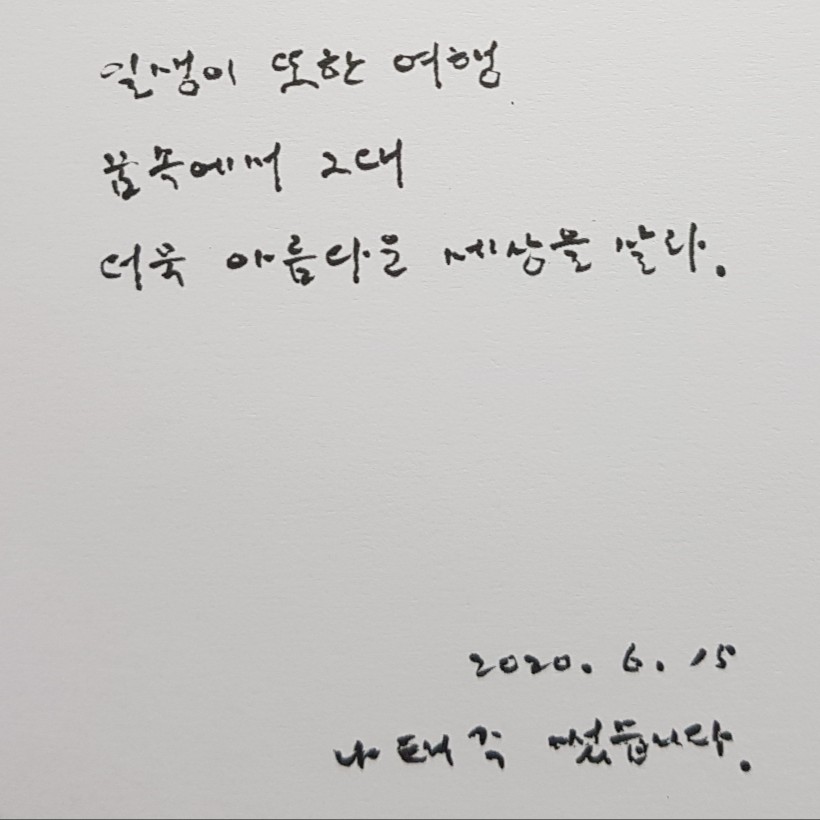 일생이 또한 여행
꿈속에서 그대
더욱 아름다운 세상을 살라.
2020. 6. 15
나태주 썼습니다.